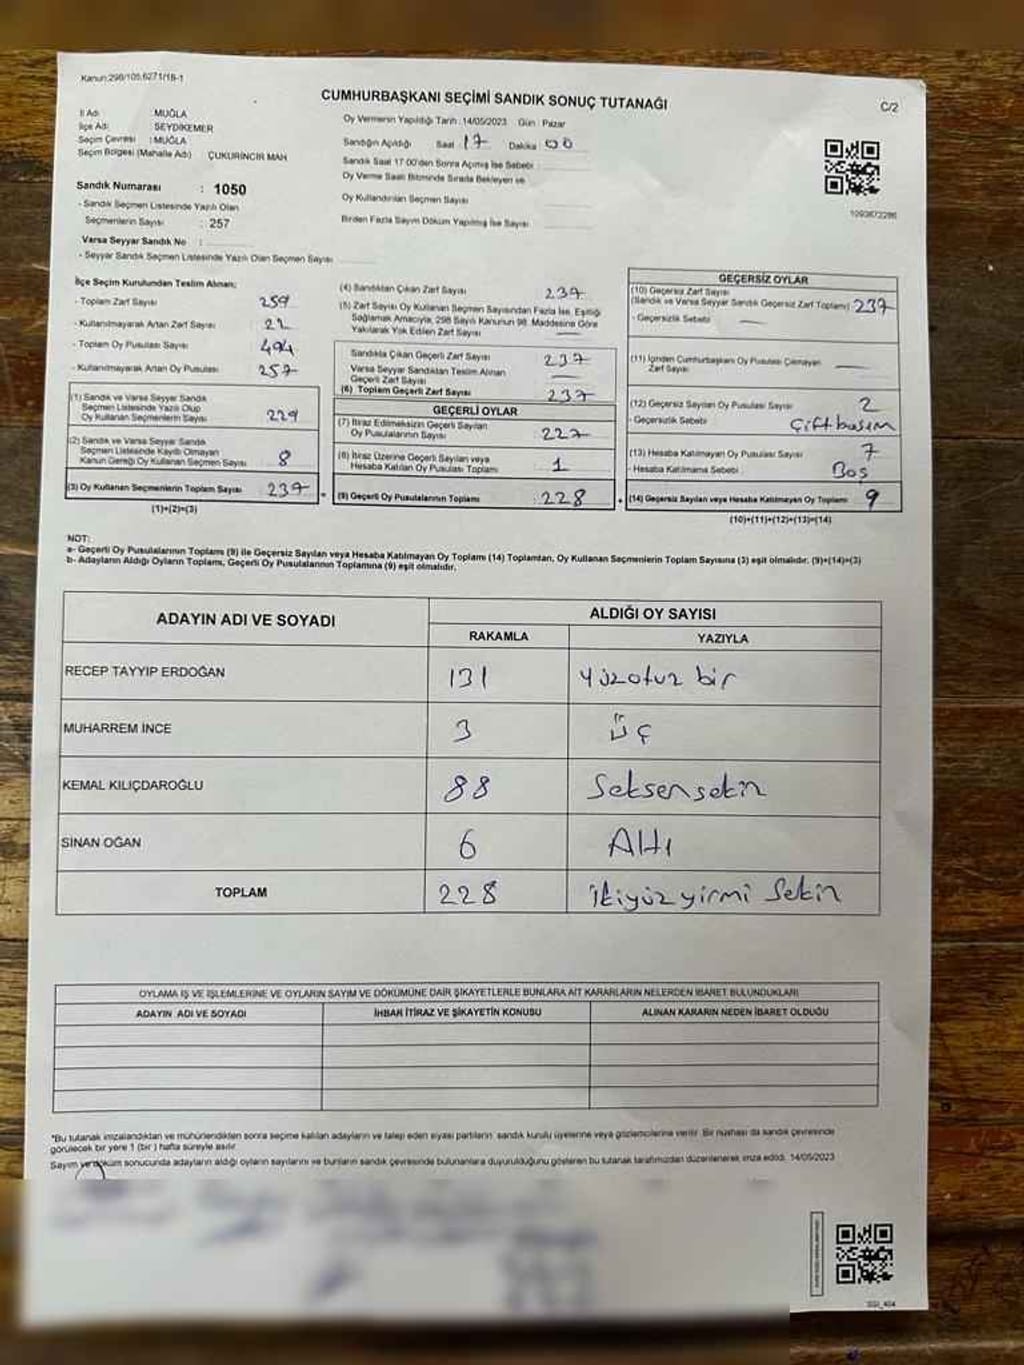 Kanun:298/105,6271/18-1
CUMHURBAŞKANI SEÇİMİ SANDIK SONUÇ TUTANAĞI
C/2
İl Adı : MUĞLA
İlçe Adı : SEYDİKEMER
Seçim Çevresi : MUĞLA
Seçim Bölgesi (Mahalle Adı) ÇUKURİNCİR MAH
Sandık Numarası : 1050
- Sandık Seçmen Listesinde Yazılı Olan
Seçmenlerin Sayısı : 257
Varsa Seyyar Sandık No :
- Seyyar Sandık Seçmen Listesinde Yazılı Olan Seçmen Sayısı
Oy Vermenin Yapıldığı Tarih : 14/05/2023 Gün : Pazar
Sandığın Açıldığı Saat 17 Dakika 00
Sandık Saat 17.00'den Sonra Açılmış İse Sebebi
Oy Verme Saati Bitiminde Sırada Bekleyen ve
Oy Kullandırılan Seçmen Sayısı
Birden Fazla Sayım Döküm Yapılmış İse Sayısı
1093672286
İlçe Seçim Kurulundan Teslim Alınan;
- Toplam Zarf Sayısı 259
- Kullanılmayarak Artan Zarf Sayısı
- Toplam Oy Pusulası Sayısı 494
- Kullanılmayarak Artan Oy Pusulası 257
(1) Sandık ve Varsa Seyyar Sandık
Seçmen Listesinde Yazılı Olup
Oy Kullanan Seçmenlerin Sayısı 229
(2) Sandık ve Varsa Seyyar Sandık
Seçmen Listesinde Kayıtlı Olmayan
Kanun Gereği Oy Kullanan Seçmen Sayısı 8
(3) Oy Kullanan Seçmenlerin Toplam Sayısı 237
(1)+(2)=(3)
(4) Sandıktan Çıkan Zarf Sayısı 237
(5) Zarf Sayısı Oy Kullanan Seçmen Sayısından Fazla İse, Eşitliği
Sağlamak Amacıyla, 298 Sayılı Kanunun 98. Maddesine Göre
Yakılarak Yok Edilen Zarf Sayısı —
Sandıkta Çıkan Geçerli Zarf Sayısı 237
Varsa Seyyar Sandıktan Teslim Alınan
Geçerli Zarf Sayısı —
(6) Toplam Geçerli Zarf Sayısı 237
GEÇERLİ OYLAR
(7) İtiraz Edilmeksizin Geçerli Sayılan
Oy Pusulalarının Sayısı 227
(8) İtiraz Üzerine Geçerli Sayılan veya
Hesaba Katılan Oy Pusulası Toplamı 1
(9) Geçerli Oy Pusulalarının Toplamı : 228
GEÇERSİZ OYLAR
(10) Geçersiz Zarf Sayısı
(Sandık ve Varsa Seyyar Sandık Geçersiz Zarf Toplamı) 237
- Geçersizlik Sebebi —
(11) İçinden Cumhurbaşkanı Oy Pusulası Çıkmayan
Zarf Sayısı —
(12) Geçersiz Sayılan Oy Pusulası Sayısı 2
- Geçersizlik Sebebi Çift basım
(13) Hesaba Katılmayan Oy Pusulası Sayısı 7
- Hesaba Katılmama Sebebi Boş
(14) Geçersiz Sayılan veya Hesaba Katılmayan Oy Toplamı 9
(10)+(11)+(12)+(13)=(14)
NOT:
a- Geçerli Oy Pusulalarının Toplamı (9) ile Geçersiz Sayılan veya Hesaba Katılmayan Oy Toplamı (14) Toplamları, Oy Kullanan Seçmenlerin Toplam Sayısına (3) eşit olmalıdır. (9)+(14)=(3)
b- Adayların Aldığı Oyların Toplamı, Geçerli Oy Pusulalarının Toplamına (9) eşit olmalıdır.
ADAYIN ADI VE SOYADI
ALDIĞI OY SAYISI
RAKAMLA YAZIYLA
RECEP TAYYIP ERDOĞAN 131 Yüzotuz bir
MUHARREM İNCE 3 Üç
KEMAL KILIÇDAROĞLU 88 Seksensekiz
SİNAN OĞAN 6 Altı
TOPLAM 228 İkiyüz yirmi Sekiz
OYLAMA İŞ VE İŞLEMLERİNE VE OYLARIN SAYIM VE DÖKÜMÜNE DAİR ŞİKAYETLERLE BUNLARA AİT KARARLARIN NELERDEN İBARET BULUNDUKLARI
ADAYIN ADI VE SOYADI İHBAR İTİRAZ VE ŞİKAYETİN KONUSU ALINAN KARARIN NEDEN İBARET OLDUĞU
*Bu tutanak imzalandıktan ve mühürlendikten sonra seçime katılan adayların ve talep eden siyasi partilerin sandık kurulu üyelerine veya gözlemcilerine verilir. Bir nüshası da sandık çevresinde
görülecek bir yere 1 (bir) hafta süreyle asılır.
Sayım ve döküm sonucunda adayların aldığı oyların sayılarını ve bunların sandık çevresinde bulunanlara duyurulduğunu gösteren bu tutanak tarafımızdan düzenlenerek imza edildi. 14/05/2023